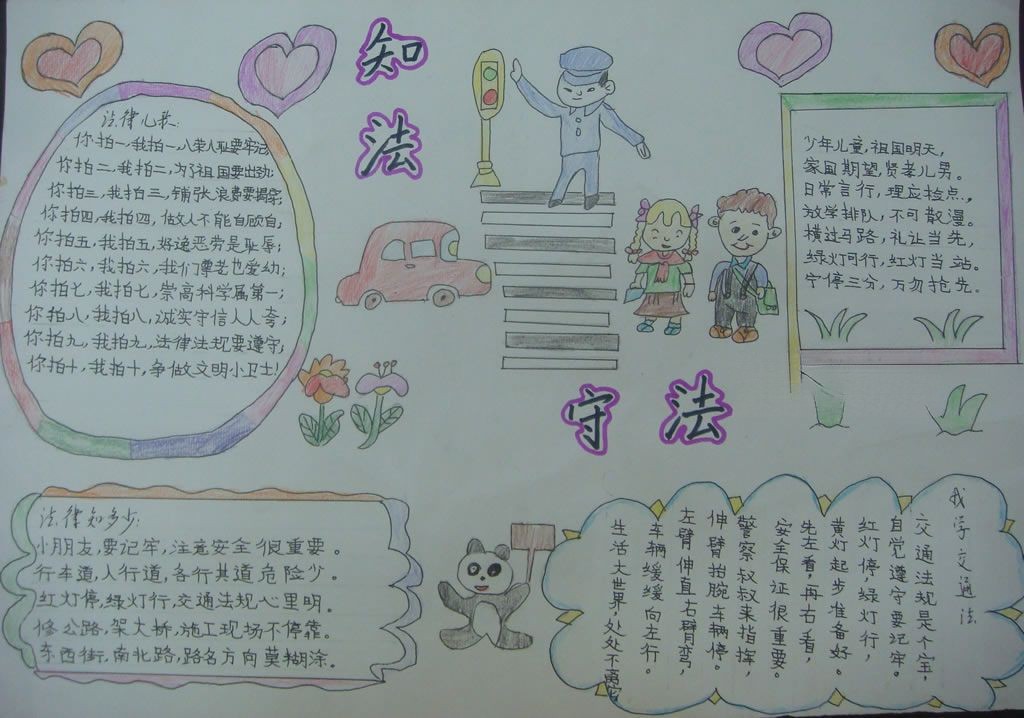 知
法
法律儿歌:
你拍一,我拍一,八荣八耻要牢记;
你拍二,我拍二,为了祖国要出劲;
你拍三,我拍三,铺张浪费要揭穿;
你拍四,我拍四,做人不能自顾自;
你拍五,我拍五,好逸恶劳是耻辱;
你拍六,我拍六,我们尊老也爱幼;
你拍七,我拍七,崇高科学属第一;
你拍八,我拍八,诚实守信人人夸;
你拍九,我拍九,法律法规要遵守;
你拍十,我拍十,争做文明小卫士!
少年儿童,祖国明天,
家国期望,贤孝儿男。
日常言行,理应检点.,
放学排队,不可散漫。
横过马路,礼让当先,
绿灯可行,红灯当站。
宁停三分,万勿抢先。
守 法
法律知多少:
小朋友,要记牢,注意安全很重要。
行车道,人行道,各行其道危险少。
红灯停,绿灯行,交通法规心里明。
修公路,架大桥,施工现场不停靠。
东西街,南北路,路名方向莫糊涂。
我学交通法
交通法规是个宝,
自觉遵守要记牢。
红灯停,绿灯行,
黄灯起步准备好。
先左看,再右看,
安全保证很重要。
警察叔叔来指挥,
伸臂抬腕车辆停。
左臂伸直右臂弯,
车辆缓缓向左行。
生活大世界,处处不离